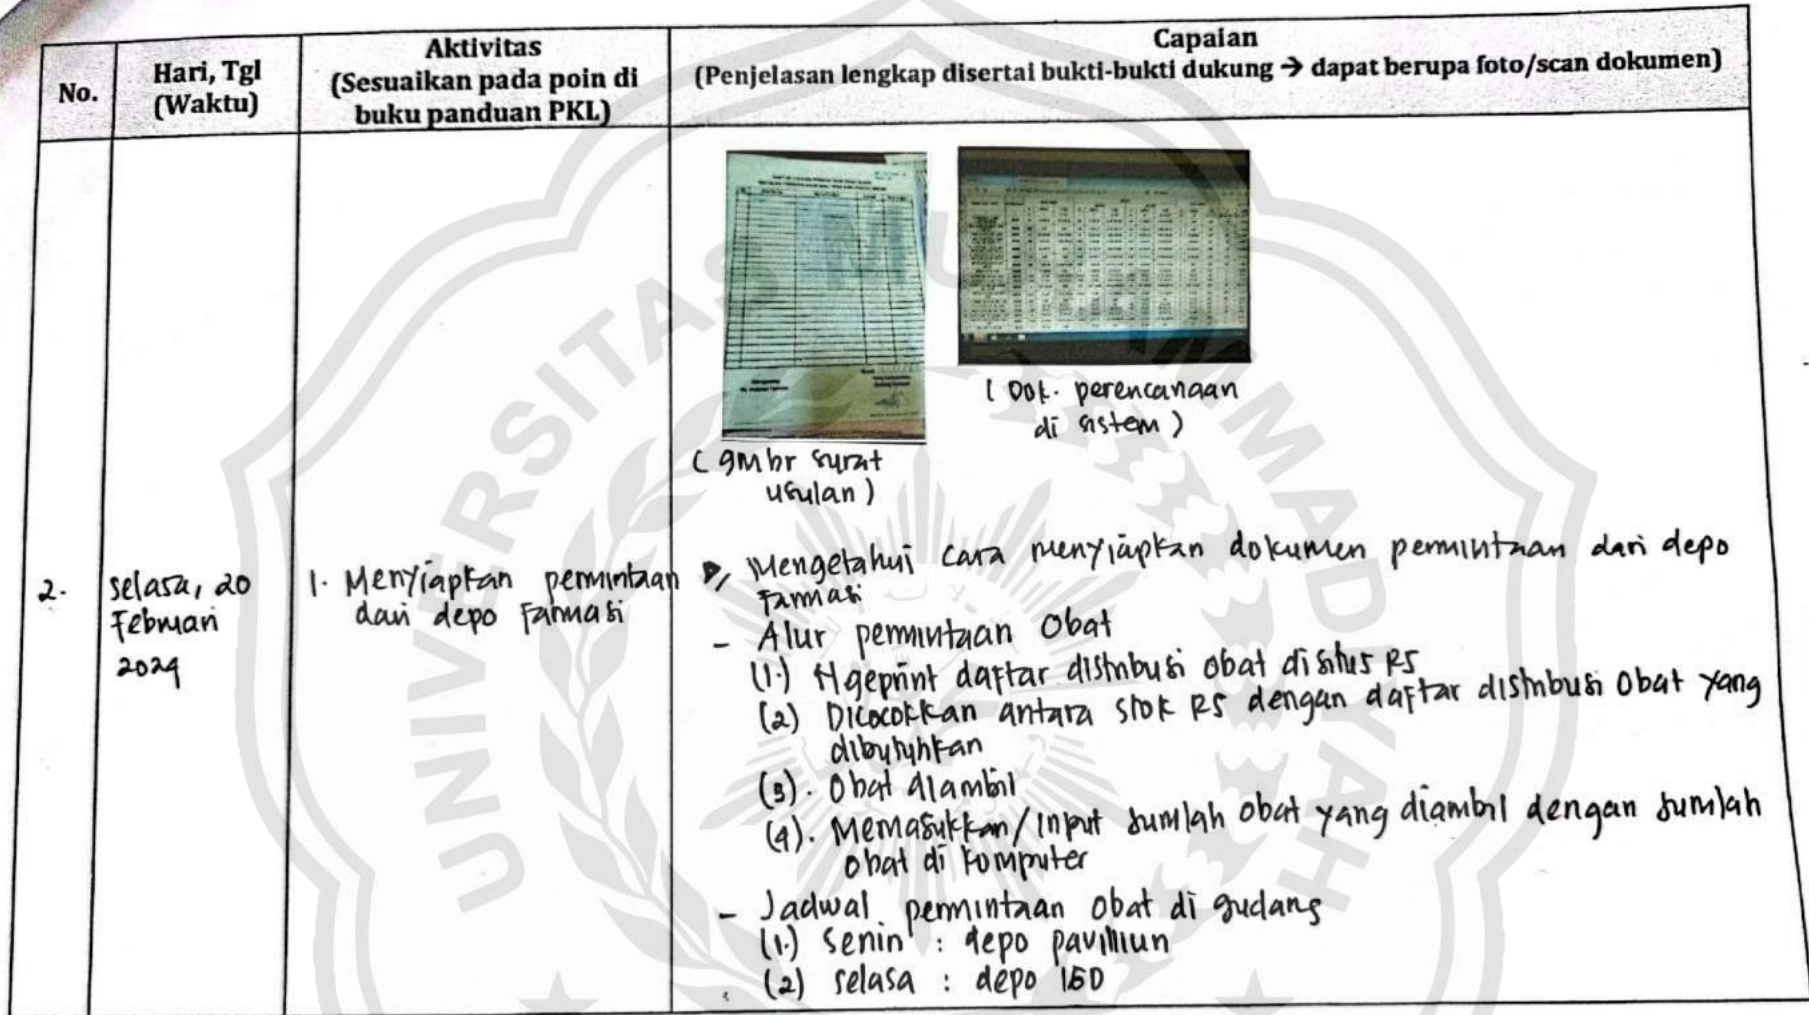 No.
Hari, Tgl
(Waktu)
Aktivitas
(Sesuaikan pada poin di
buku panduan PKL)
Capaian
(Penjelasan lengkap disertai bukti-bukti dukung → dapat berupa foto/scan dokumen)
(gmbr surat
usulan)
(Dok. perencanaan
di sistem)
2.
selasa, 20
Februari
2024
1. Menyiapkan permintaan
dari depo Farmasi
Mengetahui cara menyiapkan dokumen permintaan dari depo
Farmasi
- Alur permintaan Obat
(1.) Ngeprint daftar distribusi obat di situs RS
(2) Dicocokkan antara stok RS dengan daftar distribusi obat yang
dibutuhkan
(3). Obat diambil
(4). Memasukkan/input jumlah obat yang diambil dengan jumlah
obat di komputer
- Jadwal permintaan obat di gudang
(1.) senin : depo pavilliun
(2) selasa : depo IGD
UNIVERSITAS MUHAMMADIYAH